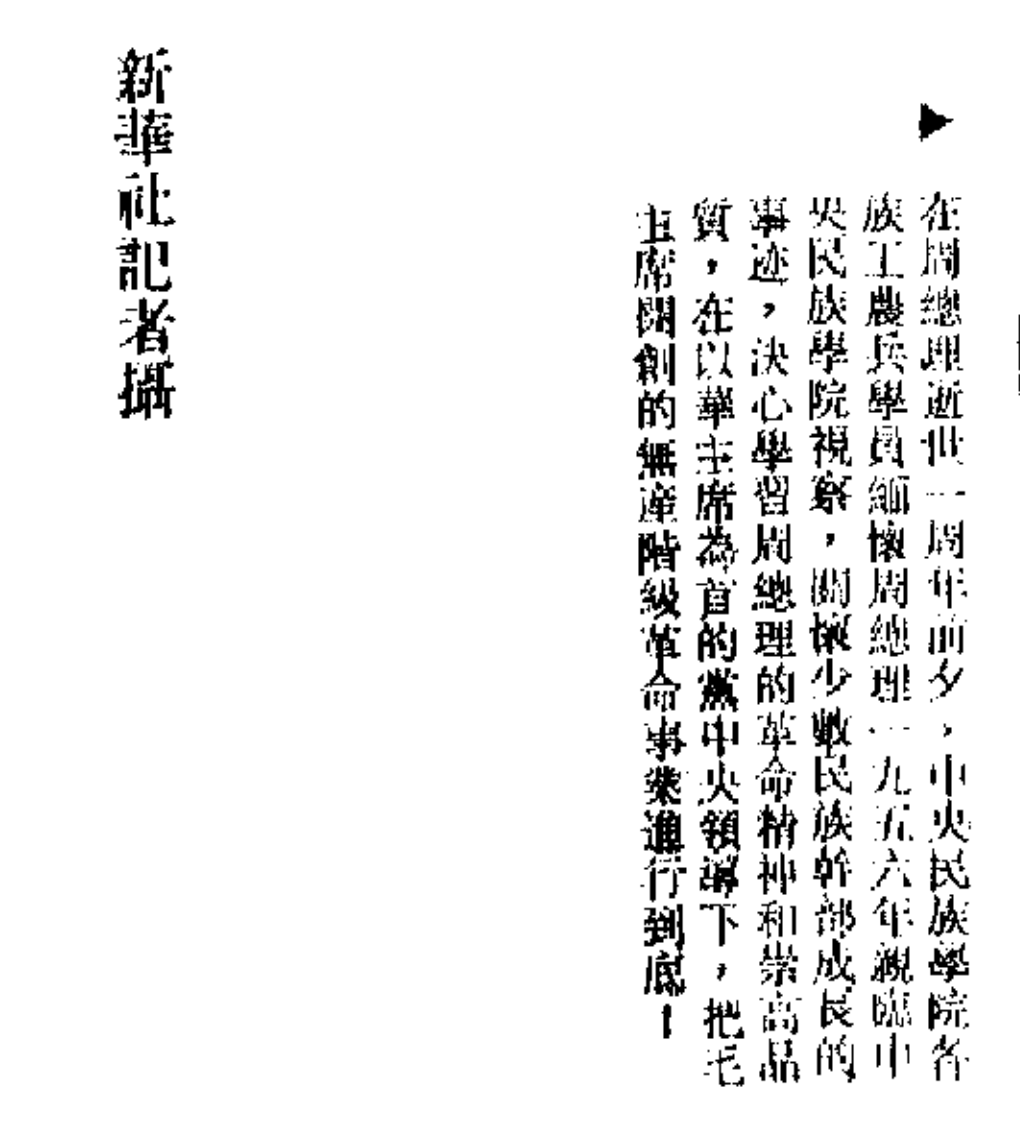 ▶在周總理逝世一周年前夕，中央民族學院各
族工農兵學員緬懷周總理一九五六年親臨中
央民族學院視察，關懷少數民族幹部成長的
事迹，決心學習周總理的革命精神和崇高品
質，在以華主席為首的黨中央領導下，把毛
主席開創的無產階級革命事業進行到底！
新華社記者攝